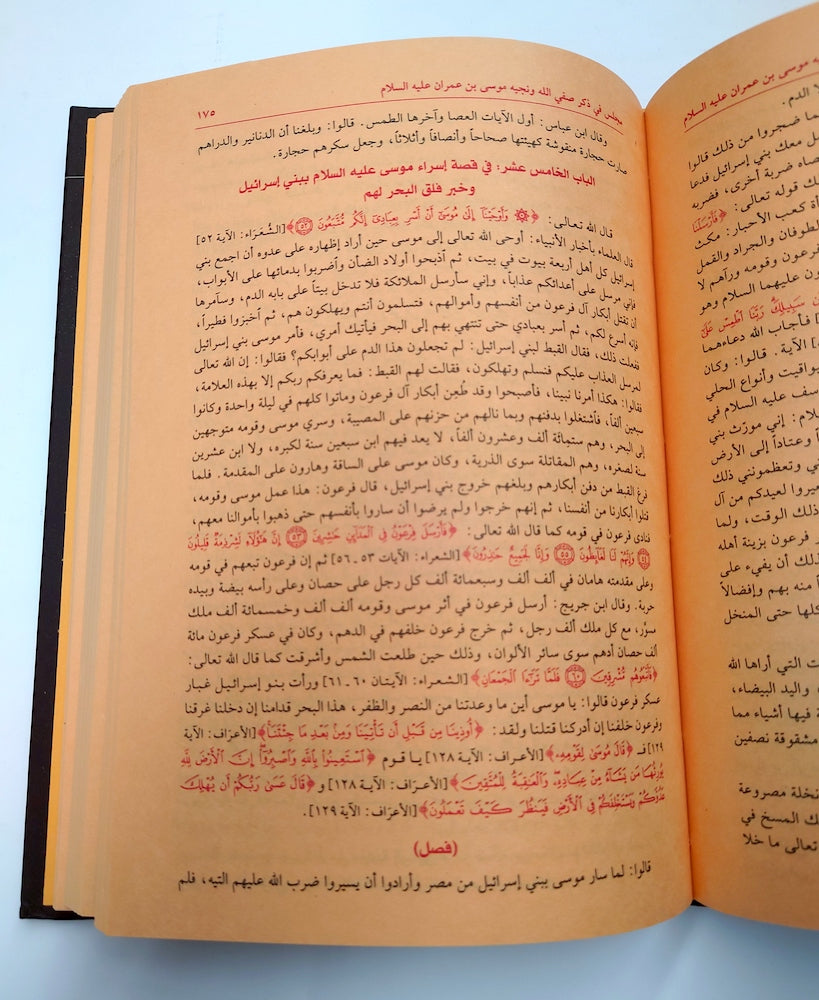 مجلس في ذكر صفي الله ونجيه موسى بن عمران عليه السلام
١٧٥
وقال ابن عباس: أول الآيات العصا وآخرها الطمس. قالوا: وبلغنا أن الدنانير والدراهم
صارت حجارة منقوشة كهيئتها صحاحاً وأنصافاً وأثلاثاً، وجعل سكرهم حجارة.
الباب الخامس عشر: في قصة إسراء موسى عليه السلام ببني إسرائيل
وخبر فلق البحر لهم
قال الله تعالى: ﴿وَأَوْحَيْنَا إِلَى مُوسَى أَنْ أَسْرِ بِعِبَادِي إِنَّكُم مُّتَّبَعُونَ ٥٢﴾ [الشُعَرَاء: الآية ٥٢]
قال العلماء بأخبار الأنبياء: أوحى الله تعالى إلى موسى حين أراد إظهاره على عدوه أن اجمع بني
إسرائيل كل أهل أربعة بيوت في بيت، ثم أذبحوا أولاد الضأن وأضربوا بدمائها على الأبواب،
فإني مرسل على أعدائكم عذاباً، وإني سأرسل الملائكة فلا تدخل بيتاً على بابه الدم، وسآمرها
أن تقتل أبكار آل فرعون من أنفسهم وأموالهم، فتسلمون أنتم ويهلكون هم، ثم أخبزوا فطيراً،
فإنه أسرع لكم، ثم أسر بعبادي حتى تنتهي بهم إلى البحر فيأتيك أمري، فأمر موسى بني إسرائيل
ففعلت ذلك، فقال القبط لبني إسرائيل: لم تجعلون هذا الدم على أبوابكم؟ فقالوا: إن الله تعالى
لمرسل العذاب عليكم فنسلم وتهلكون، فقالت لهم القبط: فما يعرفكم ربكم إلا بهذه العلامة،
فقالوا: هكذا أمرنا نبينا، فأصبحوا وقد طُعِن أبكار آل فرعون وماتوا كلهم في ليلة واحدة وكانوا
سبعين ألفاً، فأشتغلوا بدفنهم وبما نالهم من حزنهم على المصيبة، وسرى موسى وقومه متوجهين
إلى البحر، وهم ستمائة ألف وعشرون ألفاً، لا يعد فيهم ابن سبعين سنة لكبره، ولا ابن عشرين
سنة لصغره، وهم المقاتلة سوى الذرية، وكان موسى على الساقة وهارون على المقدمة. فلما
فرغ القبط من دفن أبكارهم وبلغهم خروج بني إسرائيل، قال فرعون: هذا عمل موسى وقومه،
قتلوا أبكارنا من أنفسنا، ثم إنهم خرجوا ولم يرضوا أن ساروا بأنفسهم حتى ذهبوا بأموالنا معهم،
فنادى فرعون في قومه كما قال الله تعالى: ﴿فَأَرْسَلَ فِرْعَوْنُ فِي الْمَدَائِنِ حَاشِرِينَ ٥٣ إِنَّ هَؤُلَاءِ لَشِرْذِمَةٌ قَلِيلُونَ
٥٤ وَإِنَّهُمْ لَنَا لَغَائِظُونَ ٥٥ وَإِنَّا لَجَمِيعٌ حَاذِرُونَ﴾ [الشعراء: الآيات ٥٣ ـ ٥٦] ثم إن فرعون تبعهم في قومه
وعلى مقدمته هامان في ألف ألف وسبعمائة ألف كل رجل على حصان وعلى رأسه بيضة وبيده
حربة. وقال ابن جريج: أرسل فرعون في أثر موسى وقومه ألف ألف وخمسمائة ألف ملك
مسوَّر، مع كل ملك ألف رجل، ثم خرج فرعون خلفهم في الدهم، وكان في عسكر فرعون مائة
ألف حصان أدهم سوى سائر الألوان، وذلك حين طلعت الشمس وأشرقت كما قال الله تعالى:
﴿فَأَتْبَعُوهُم مُّشْرِقِينَ ٦٠ فَلَمَّا تَرَاءَا الْجَمْعَانِ﴾ [الشعراء: الآيتان ٦٠ ـ ٦١] ورأت بنو إسرائيل غبار
عسكر فرعون قالوا: يا موسى أين ما وعدتنا من النصر والظفر، هذا البحر قدامنا إن دخلنا غرقنا
وفرعون خلفنا إن أدركنا قتلنا ولقد: ﴿أُوذِينَا مِن قَبْلِ أَن تَأْتِيَنَا وَمِن بَعْدِ مَا جِئْتَنَا﴾ [الأعرَاف: الآية
١٢٩] فـ ﴿قَالَ مُوسَى لِقَوْمِهِ﴾ [الأعراف: الآية ١٢٨] يا قوم ﴿اسْتَعِينُوا بِاللَّهِ وَاصْبِرُوا إِنَّ الْأَرْضَ لِلَّهِ
يُورِثُهَا مَن يَشَاءُ مِنْ عِبَادِهِ وَالْعَاقِبَةُ لِلْمُتَّقِينَ﴾ [الأعرَاف: الآية ١٢٨] و ﴿قَالَ عَسَى رَبُّكُمْ أَن يُهْلِكَ
عَدُوَّكُمْ وَيَسْتَخْلِفَكُمْ فِي الْأَرْضِ فَيَنظُرَ كَيْفَ تَعْمَلُونَ﴾ [الأعرَاف: الآية ١٢٩].
(فصل)
قالوا: لما سار موسى ببني إسرائيل من مصر وأرادوا أن يسيروا ضرب الله عليهم التيه، فلم
موسى بن عمران عليه السلام
الدم.
ضجروا من ذلك قالوا
معك بني إسرائيل فدعا
ضربة أخرى، فضربه
قوله تعالى: ﴿فَأَرْسَلْنَا
كعب الأحبار: مكث
الطوفان والجراد والقمل
فرعون وقومه ورآهم لا
عليهما السلام وهو
سَبِيلِكَ رَبَّنَا اطْمِسْ عَلَى
فأجاب الله دعاءهما
الآية. قالوا: وكان
اليواقيت وأنواع الحلي
عليه السلام في
إني مورّث بني
وعتاداً إلى الأرض
وتعظمونني ذلك
لعيدكم من آل
ذلك الوقت، ولما
فرعون بزينة أهله
ذلك أن يفيء على
منه بهم وإفضالاً
كلها حتى المنخل
التي أراها الله
واليد البيضاء،
فيها أشياء مما
مشقوقة نصفين
مصروعة
المسخ في
تعالى ما خلا